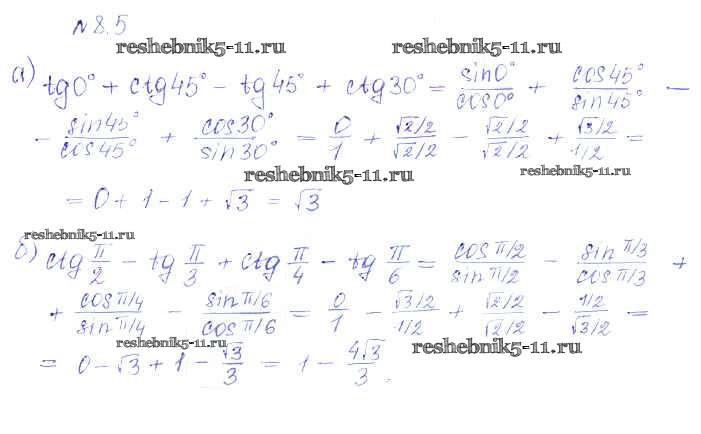 №8.5
reshebnik5-11.ru reshebnik5-11.ru
а) tg0° + ctg45° − tg45° + ctg30° = sin0°/cos0° + cos45°/sin45° −
− sin45°/cos45° + cos30°/sin30° = 0/1 + (√2/2)/(√2/2) − (√2/2)/(√2/2) + (√3/2)/(1/2) =
reshebnik5-11.ru reshebnik5-11.ru
= 0 + 1 − 1 + √3 = √3
reshebnik5-11.ru
б) ctg π/2 − tg π/3 + ctg π/4 − tg π/6 = (cos π/2)/(sin π/2) − (sin π/3)/(cos π/3) +
+ (cos π/4)/(sin π/4) − (sin π/6)/(cos π/6) = 0/1 − (√3/2)/(1/2) + (√2/2)/(√2/2) − (1/2)/(√3/2) =
reshebnik5-11.ru reshebnik5-11.ru
= 0 − √3 + 1 − √3/3 = 1 − 4√3/3.